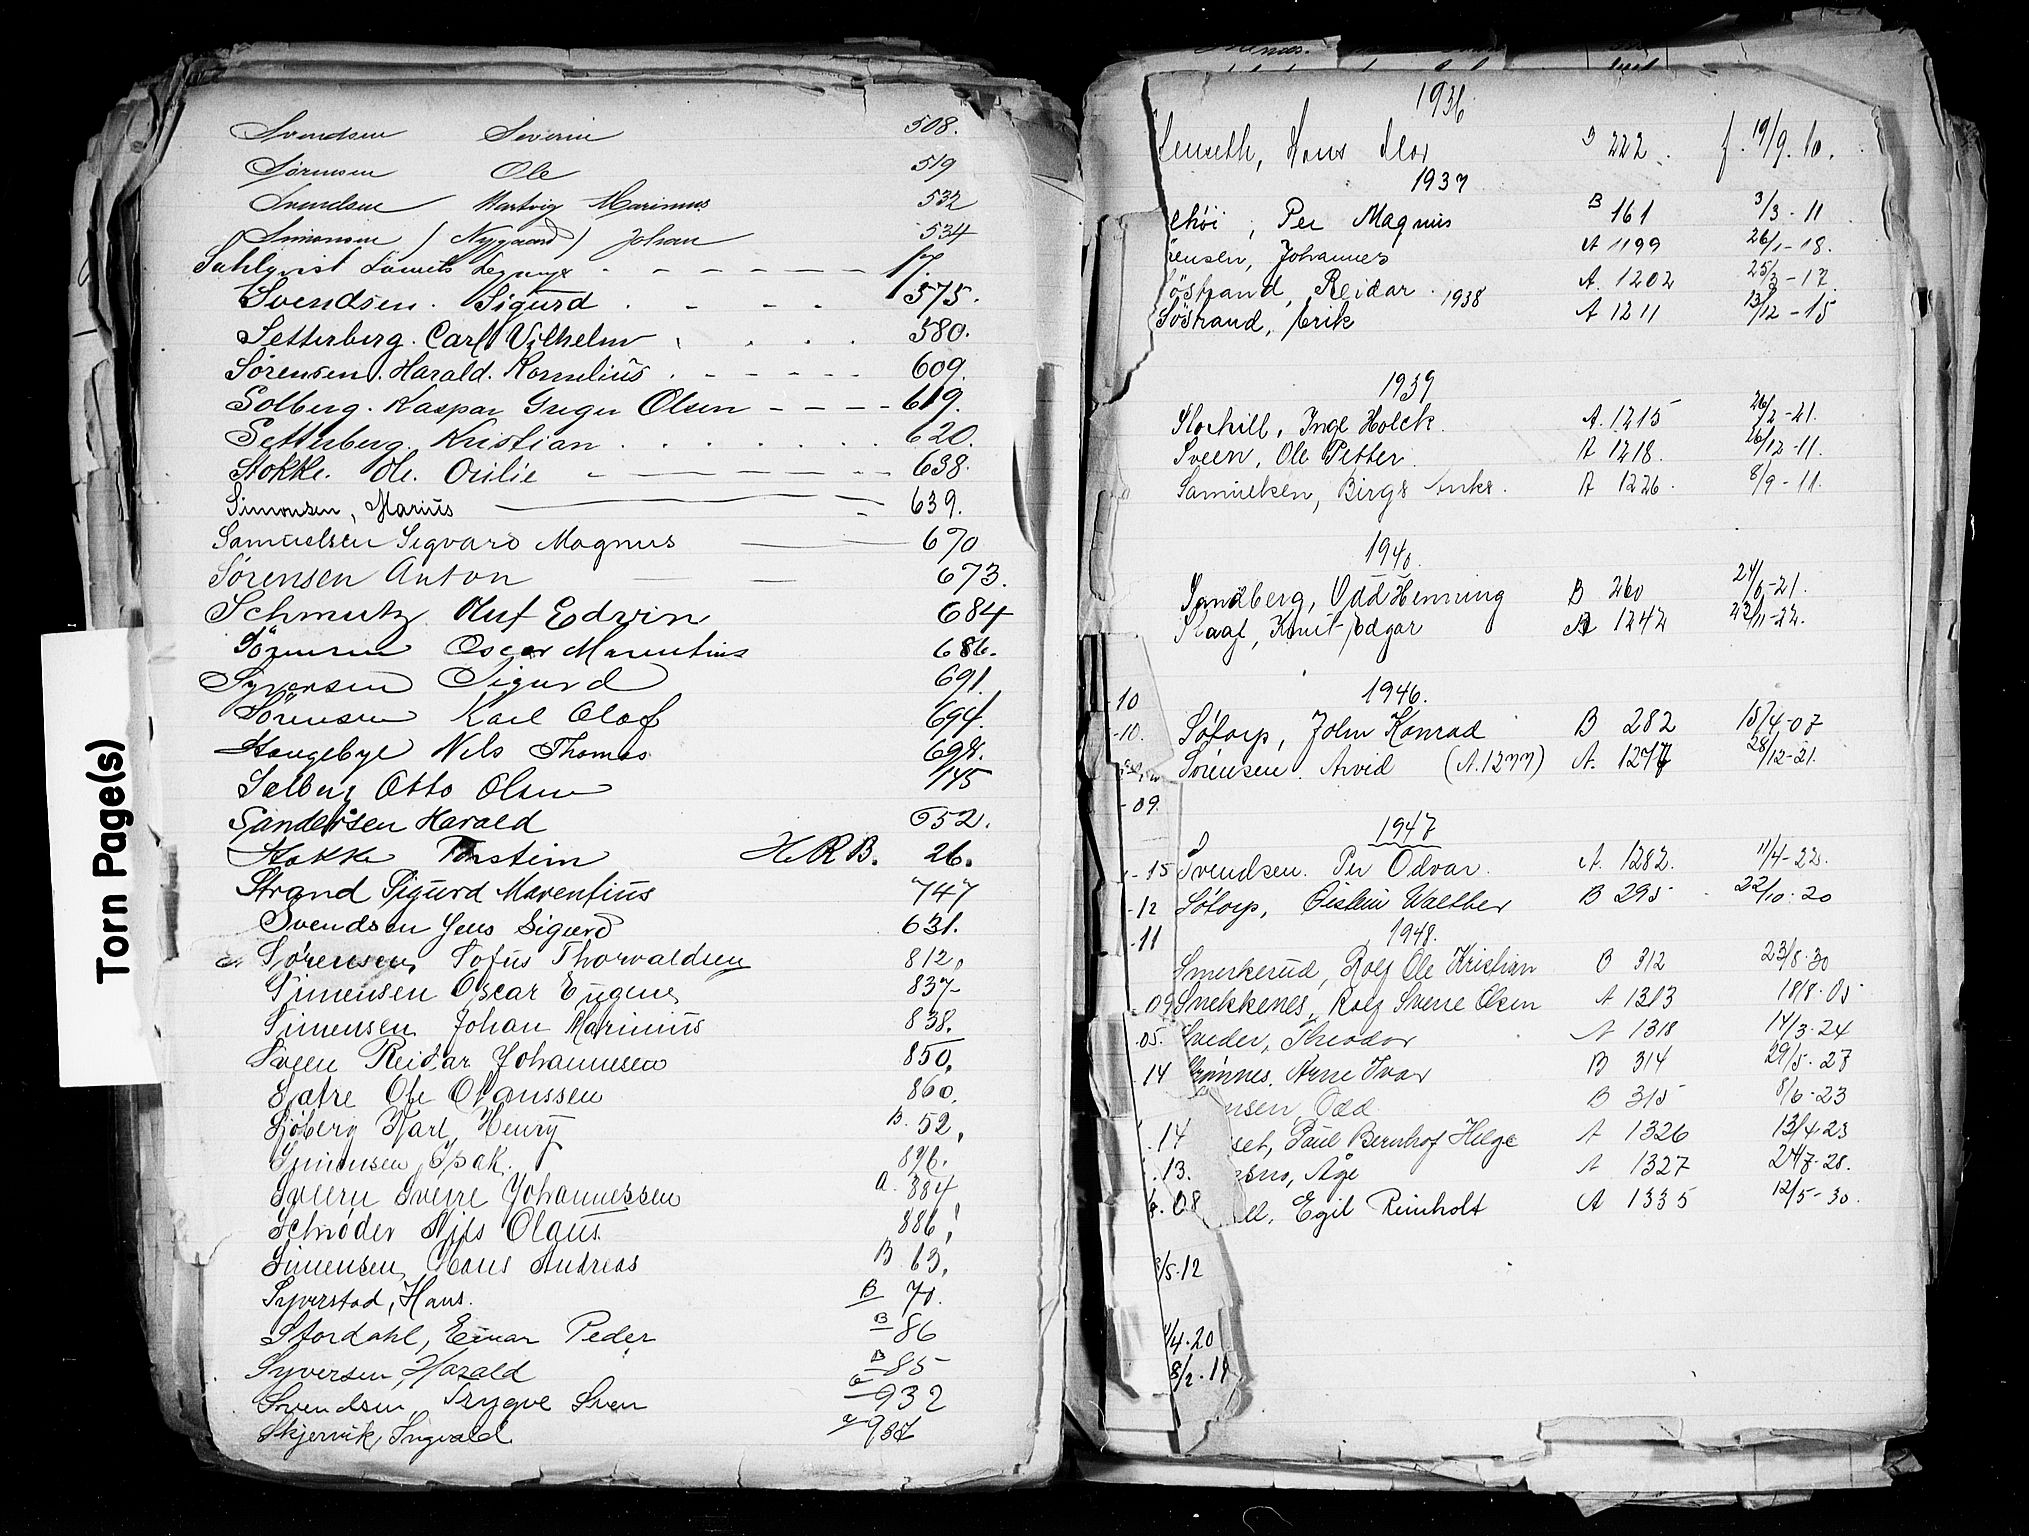 Svendsen Severin 508.
Sørensen Ole 519
Svendsen Hartvig Marinius 532
Simonsen / Nygaard / Johan 534
Sahlqvist 17.
Svendsen. Sigurd 575.
Setterberg. Carl Vilhelm 580.
Sørensen. Harald. Kornelius 609.
Solberg. Kaspar Greger Olsen 619.
Setterberg. Kristian 620.
Stokke. Ole. Otilie 638.
Simonsen, Marius 639.
Samuelsen Sigvard Magnus 670
Sørensen Anton 673.
Schmutz Oluf Edvin 684
Sörensen Oscar Marentius 686.
Syversen Sigurd 691
Sörensen Karl Olaf 694.
Haugebye Nils Thomas 698.
Solberg Otto Olsen 145
Sandersen Harald 652.
Stokke Torstein H.R.B. 26.
Strand Sigurd Marentius 747
Svendsen Jens Sigurd 631.
Sørensen, Sofus Thorvaldsen 812,
Simensen Oscar Eugene 837
Simensen Johan Marinius 838.
Sveen Reidar Johannesen 850,
Sætre Ole Olaussen 860,
Sjöberg Karl Henry B. 52,
Simonsen Isak. 896.
Sveen Sverre Johannessen a. 884
Schrøder Nils Olaus 886,
Simensen, Hans Andreas B 63,
Syverstad, Hans. B 70.
Stordahl, Einar Peder B 86
Syversen, Harald B 85
Svendsen, Trygve Sven a 932
Skjervik, Ingvald a 937
Torn Page(s)
1936
Hans B 222. f. 19/9. 10.
1937
Per Magnus B 161 3/3 - 11
ensen, Johannes A 1199 26/1 - 18.
östrand, Reidar A. 1202 25/3 - 17.
1938
Söstrand, Erik A 1211 13/12 - 15
1939
Storhill, Inge Holck. A. 1215 26/2 - 21.
Sveen, Ole Petter. A 1218. 26/12 - 11.
Samuelsen, Birger A 1226. 8/9 - 11.
1940.
Sandberg, Odd Henning B 260 24/6 - 21.
Skaaf, Knut Edgar A 1242 23/11 - 22.
1946.
Søtorp, John Konrad B 282 15/4 - 07
Sørensen. Arvid (A.1277) A. 1277 28/12 - 21.
1947
Svendsen. Per Odvar. A. 1282. 11/4 - 22.
Søtorp, Øistein Walther B 295 22/10 - 20
1948.
Smerkerud, Rolf Ole Kristian B 312 23/8 - 30
Snekkenes, Rolf Sverre Olsen A 1313 18/8 - 05
Sveder, Theodor A 1318 14/3 - 24
Arne Ivar B 314 29/5 - 27
nsen, Odd B 315 8/6 - 23
set, Paul Bernhof Helge A 1326 13/4 - 23
Åge A 1327 24/7 - 28.
ll, Egil Reinholt A 1335 12/5 - 30.
-10
-10.
-09.
-15
-12
-11
09
05.
.14
.14
.13.
.08
/5-12
1/4.20
8/2.11